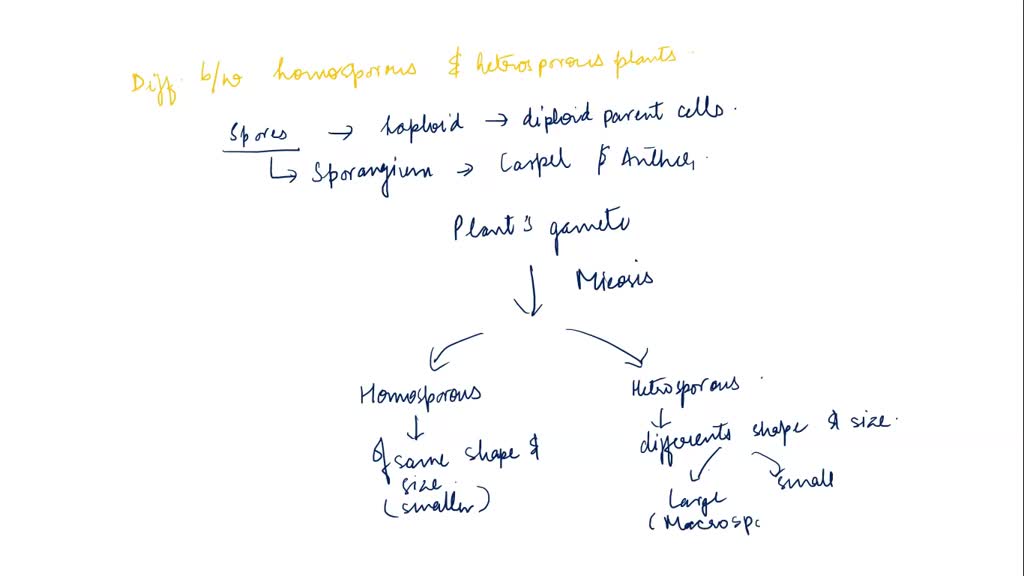 Diff. b/w homosporous & hetrosporous plants.
Spores → haploid → diploid parent cells.
↳ Sporangium → Carpel & Anther.
Plant's gamete
Meiosis
Homosporous
Hetrosporous
of same shape &
size.
(smaller)
differents shape & size.
small
Large
(Macrospo